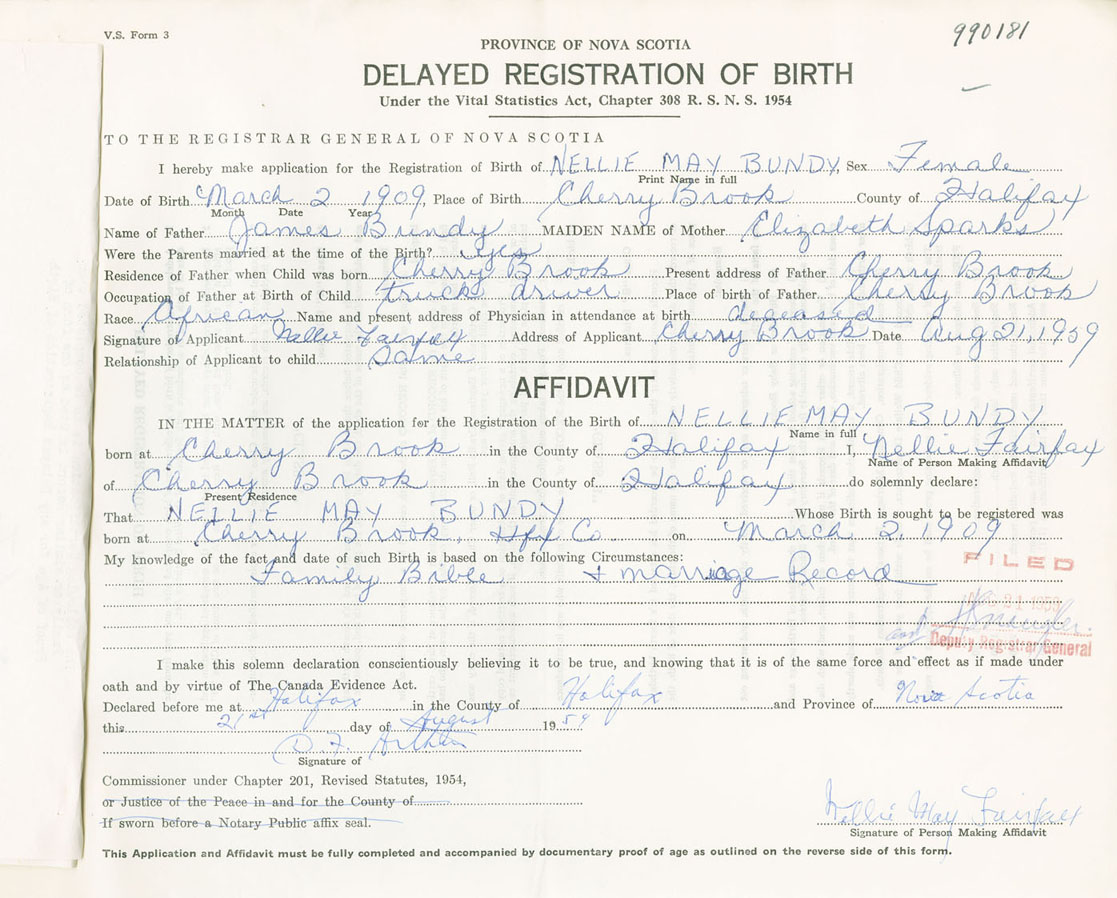 V.S. Form 3
990181
PROVINCE OF NOVA SCOTIA
DELAYED REGISTRATION OF BIRTH
Under the Vital Statistics Act, Chapter 308 R. S. N. S. 1954
TO THE REGISTRAR GENERAL OF NOVA SCOTIA
I hereby make application for the Registration of Birth of NELLIE MAY BUNDY, Sex Female
Print Name in full
Date of Birth March 2 1909, Place of Birth Cherry Brook County of Halifax
Month Date Year
Name of Father James Bundy MAIDEN NAME of Mother Elizabeth Sparks
Were the Parents married at the time of the Birth? yes
Residence of Father when Child was born Cherry Brook Present address of Father Cherry Brook
Occupation of Father at Birth of Child truck driver Place of birth of Father Cherry Brook
Race African Name and present address of Physician in attendance at birth deceased
Signature of Applicant Nellie Fairfax Address of Applicant Cherry Brook Date Aug 21, 1959
Relationship of Applicant to child Same
AFFIDAVIT
IN THE MATTER of the application for the Registration of the Birth of NELLIE MAY BUNDY
Name in full
born at Cherry Brook in the County of Halifax I, Nellie Fairfax
Name of Person Making Affidavit
of Cherry Brook in the County of Halifax do solemnly declare:
Present Residence
That NELLIE MAY BUNDY Whose Birth is sought to be registered was
born at Cherry Brook, Hfx Co on March 2, 1909
My knowledge of the fact and date of such Birth is based on the following Circumstances:
Family Bible + marriage Record
FILED
Deputy Registrar General
I make this solemn declaration conscientiously believing it to be true, and knowing that it is of the same force and effect as if made under
oath and by virtue of The Canada Evidence Act.
Declared before me at Halifax in the County of Halifax and Province of Nova Scotia
this 21st day of August 1959
Signature of
Commissioner under Chapter 201, Revised Statutes, 1954,
or Justice of the Peace in and for the County of
If sworn before a Notary Public affix seal.
Nellie May Fairfax
Signature of Person Making Affidavit
This Application and Affidavit must be fully completed and accompanied by documentary proof of age as outlined on the reverse side of this form.